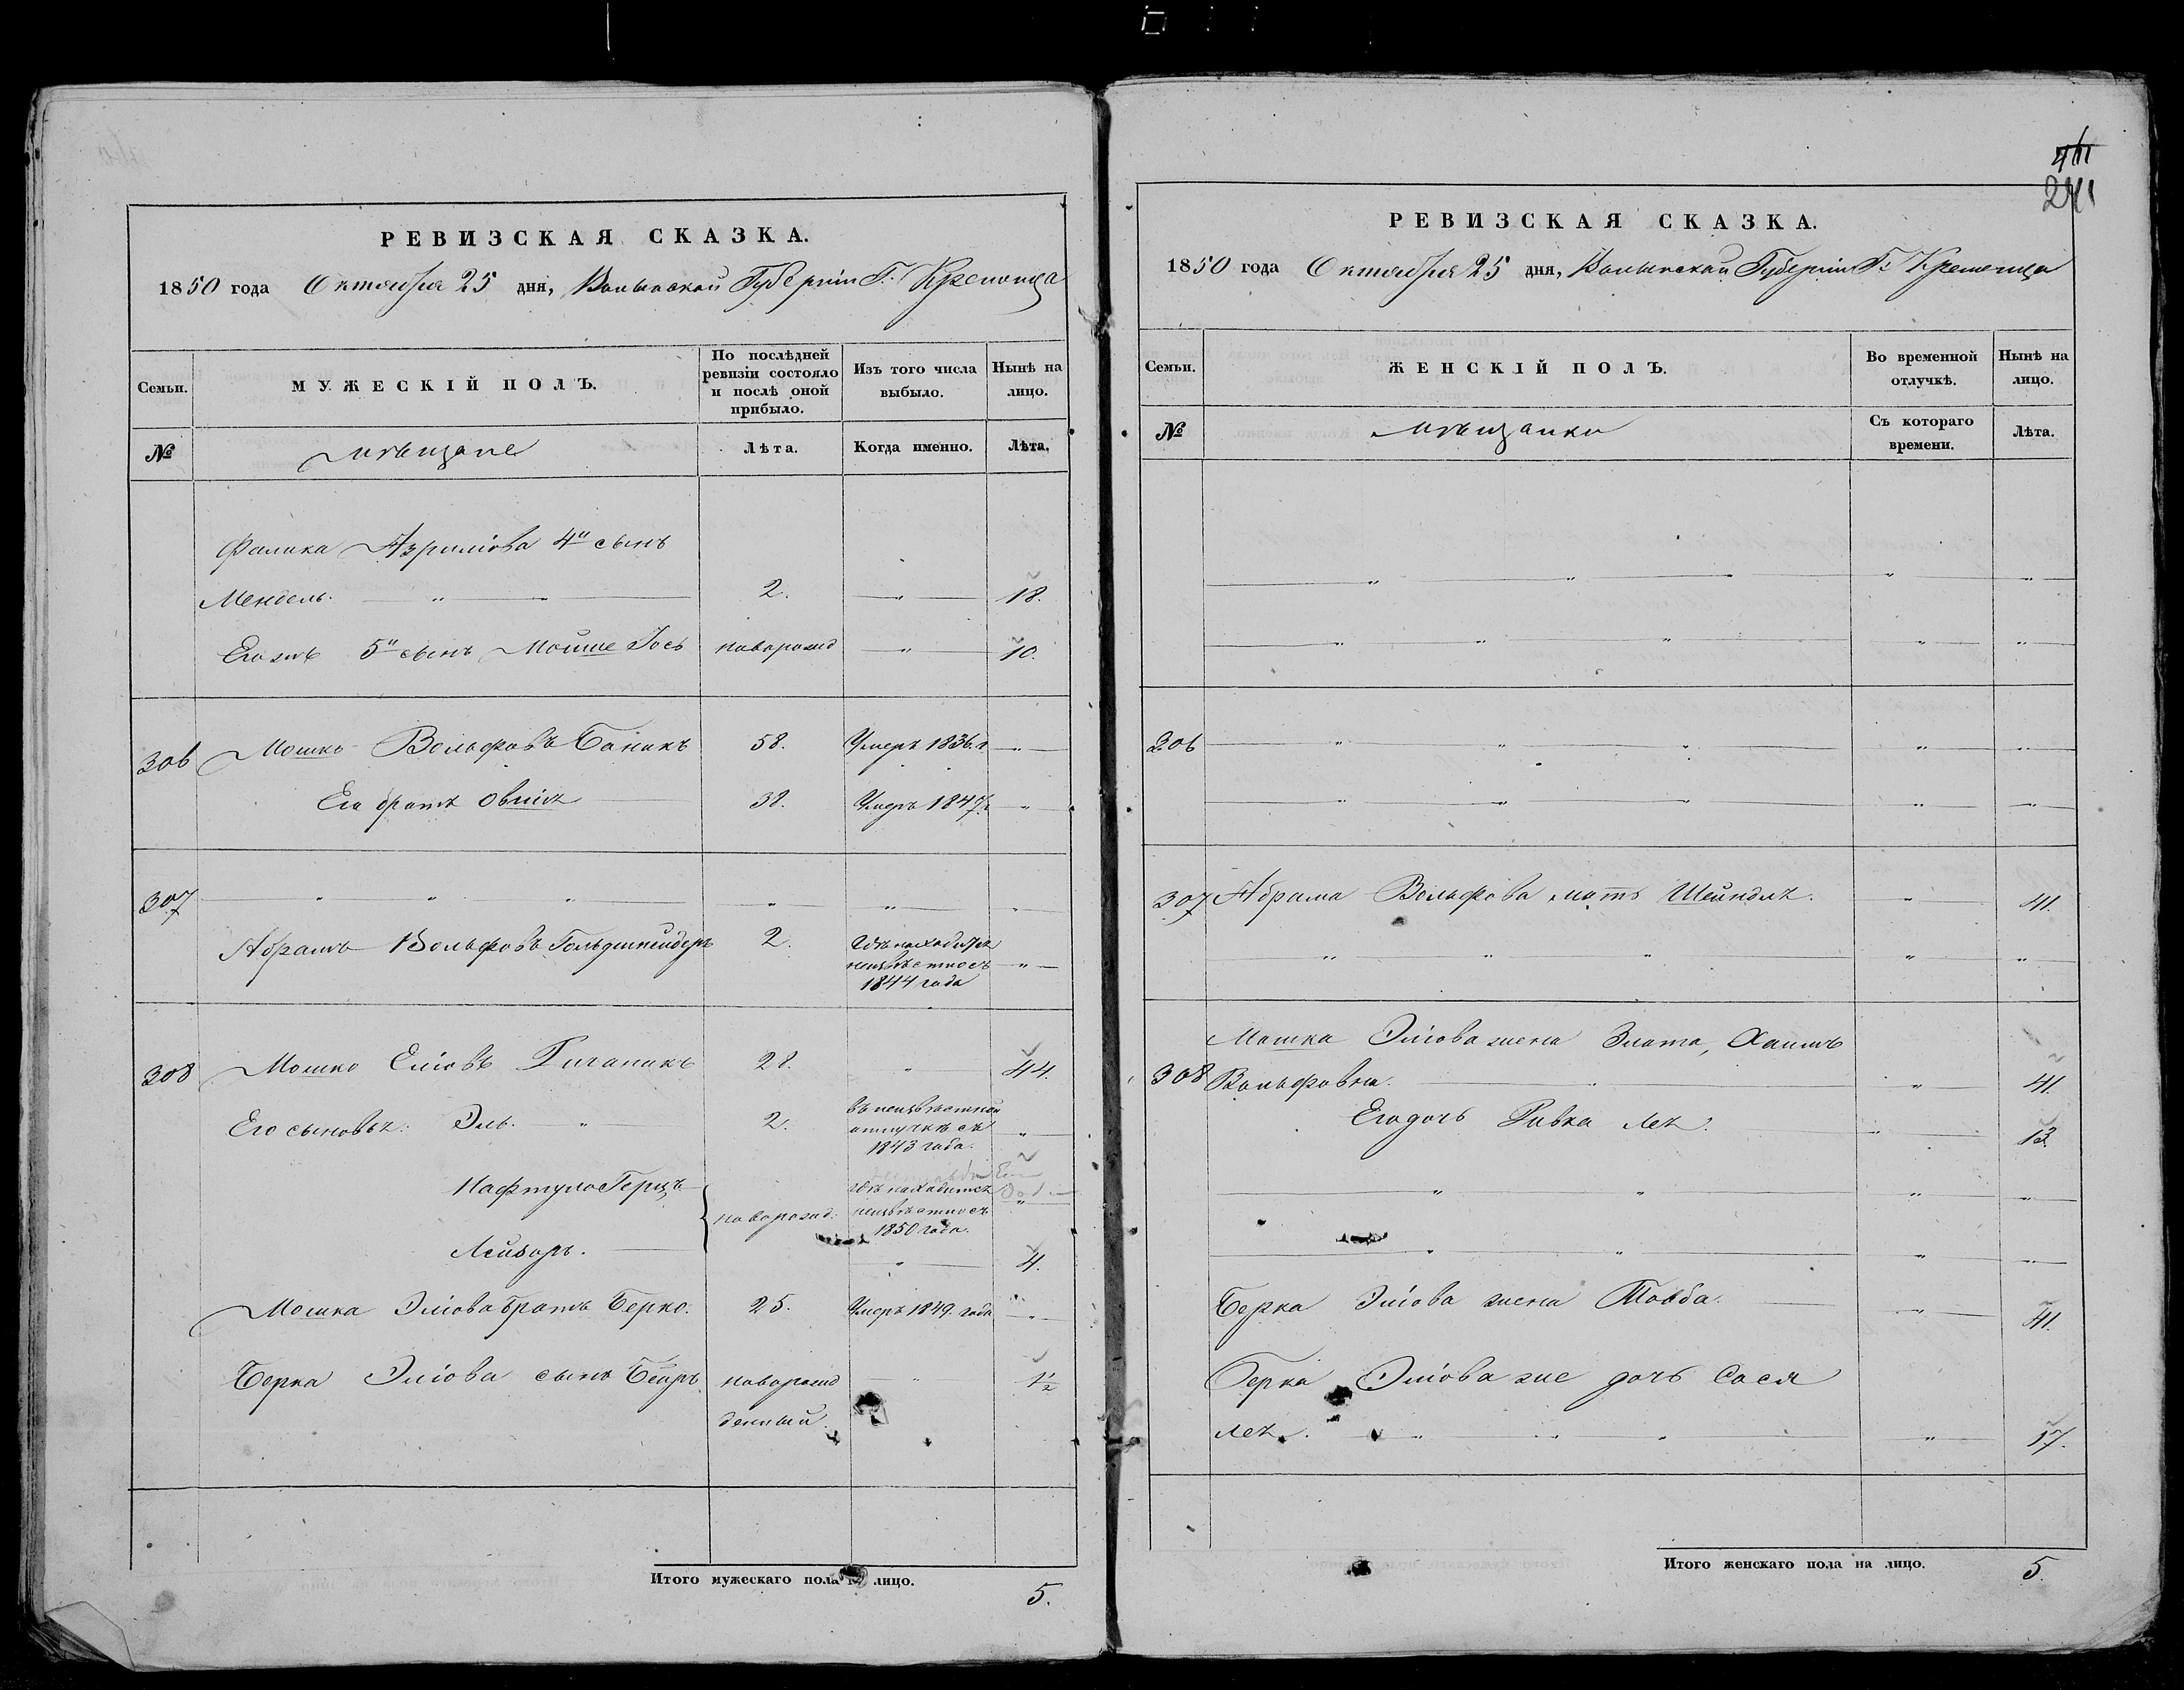 РЕВИЗСКАЯ СКАЗКА.
1850 года Октября 25 дня, Волынской Губерніи Г. Кременца
Семьи.
МУЖЕСКІЙ ПОЛЪ.
По послѣдней ревизіи состояло и послѣ оной прибыло.
Изъ того числа выбыло.
Нынѣ на лицо.
№
мѣщане
Лѣта.
Когда именно.
Лѣта.
Фалика Азриліова 4й сынъ
Мендель. 2. 18.
Его же 5й сынъ Мойше Іось новорожд 10.
306 Мошко Вольфовъ Баникъ 58. Умеръ 1836. г
Его братъ Овшіа 38. Умеръ 1847 г
307
Абрамъ Вольфовъ 2. гдѣ находится
неизвѣстно съ
1844 года
308 Мошко Еліовъ 28. 44.
Его сыновья: Эль. 2. въ неизвѣстной
отлучкѣ съ
1843 года.
Нафтула Герцъ новорожд. гдѣ находится
неизвѣстно съ
1850 года.
Лейзоръ. 4.
Мошка Эліова братъ Берко. 25. Умеръ 1849. года
Берка Эліова сынъ новорожд 1½
денный
Итого мужескаго пола на лицо.
5.
241
РЕВИЗСКАЯ СКАЗКА.
1850 года Октября 25 дня, Волынской Губерніи Г. Кременца
Семьи.
ЖЕНСКІЙ ПОЛЪ.
Во временной отлучкѣ.
Нынѣ на лицо.
№
мѣщанки
Съ котораго времени.
Лѣта.
306
307 Абрама Вольфова мать Шейндля. 41.
Мошка Эліова жена Злота, Хаимъ
308 Вольфовна. 41.
Его дочь Ривка Лея. 13.
Берка Эліова жена Товба. 41.
Берка Эліова же дочь Сося
Лея. 17.
Итого женскаго пола на лицо.
5.